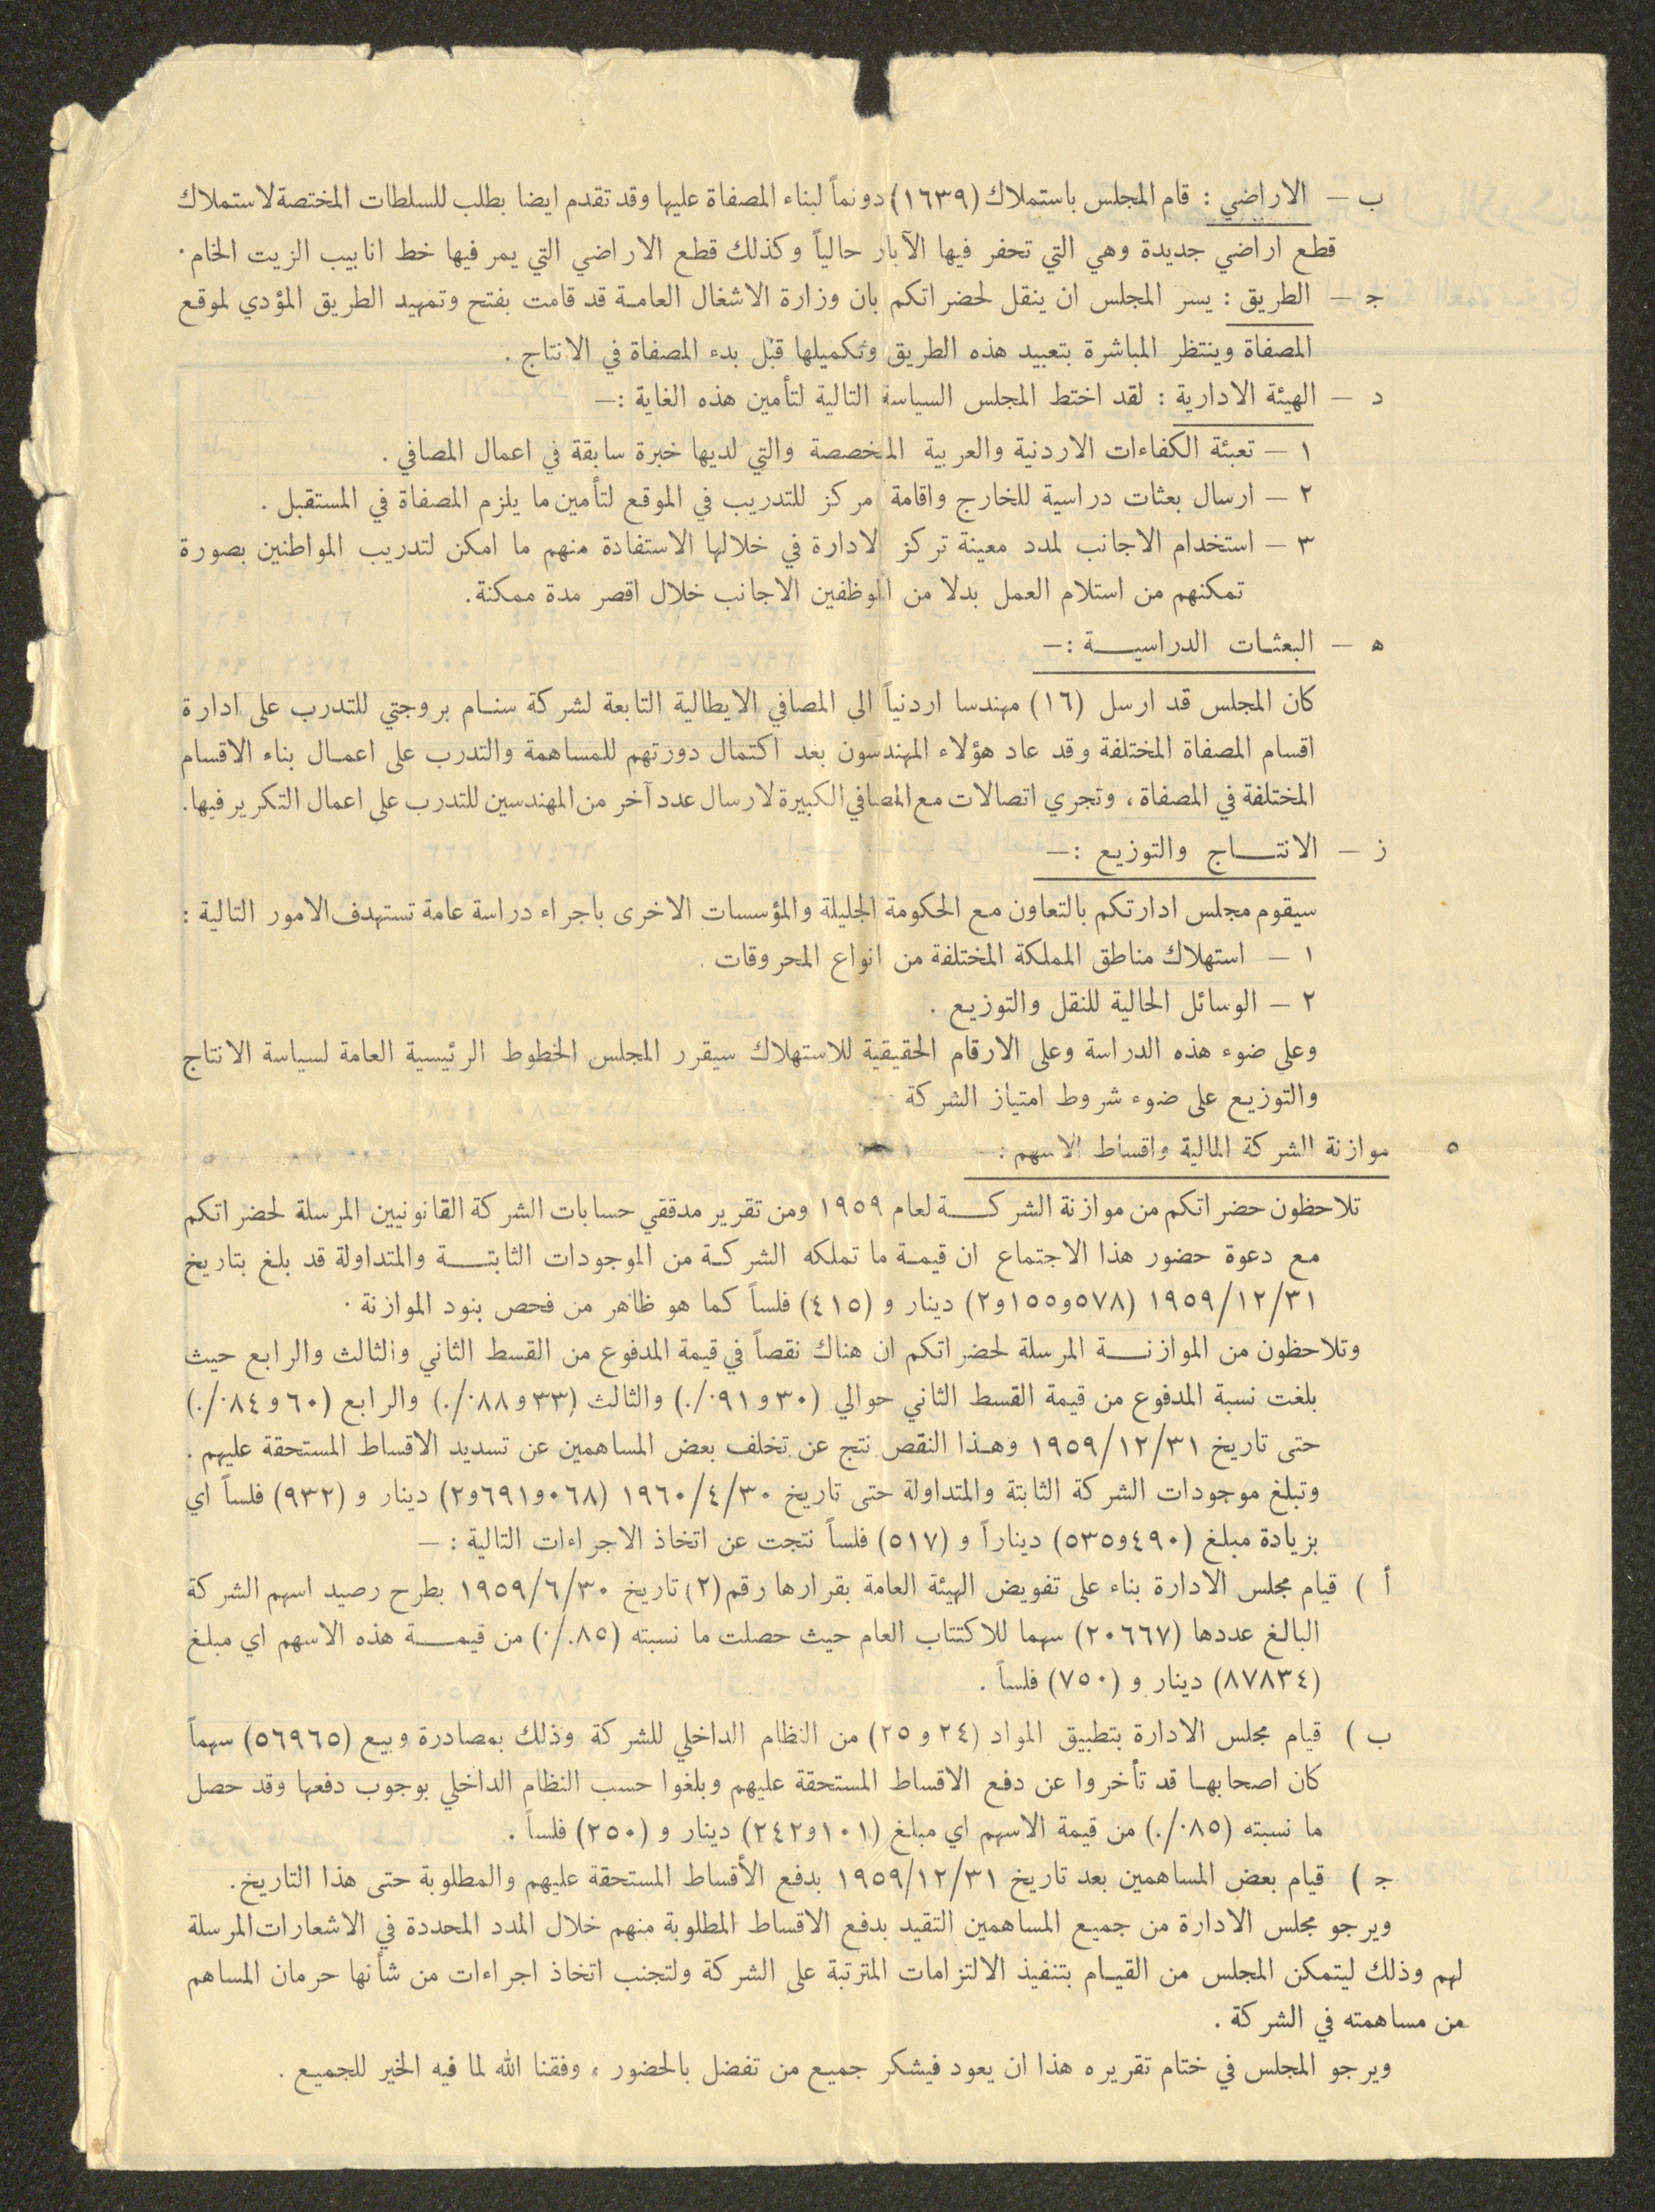 ب — الاراضي : قام المجلس باستملاك (١٦٣٩) دونماً لبناء المصفاة عليها وقد تقدم ايضا بطلب للسلطات المختصة لاستملاك
قطع اراضي جديدة وهي التي تحفر فيها الآبار حالياً وكذلك قطع الاراضي التي يمر فيها خط انابيب الزيت الخام ٠
ج — الطريق : يسر المجلس ان ينقل لحضراتكم بان وزارة الاشغال العامة قد قامت بفتح وتمهيد الطريق المؤدي لموقع
المصفاة وينتظر المباشرة بتعبيد هذه الطريق وتكميلها قبل بدء المصفاة في الانتاج .
د — الهيئة الادارية : لقد اختط المجلس السياسة التالية لتأمين هذه الغاية :—
١ — تعبئة الكفاءات الاردنية والعربية المخصصة والتي لديها خبرة سابقة في اعمال المصافي .
٢ — ارسال بعثات دراسية للخارج واقامة مركز للتدريب في الموقع لتأمين ما يلزم المصفاة في المستقبل .
٣ — استخدام الاجانب لمدد معينة تركز الادارة في خلالها الاستفادة منهم ما امكن لتدريب المواطنين بصورة
تمكنهم من استلام العمل بدلا من الموظفين الاجانب خلال اقصر مدة ممكنة.
ه — البعثات الدراسية :—
كان المجلس قد ارسل (١٦) مهندسا اردنياً الى المصافي الايطالية التابعة لشركة سنام بروجتي للتدرب على ادارة
اقسام المصفاة المختلفة وقد عاد هؤلاء المهندسون بعد اكتمال دورتهم للمساهمة والتدرب على اعمال بناء الاقسام
المختلفة في المصفاة ، وتجري اتصالات مع المصافي الكبيرة لارسال عدد آخر من المهندسين للتدرب على اعمال التكرير فيها.
ز — الانتاج والتوزيع :—
سيقوم مجلس ادارتكم بالتعاون مع الحكومة الجليلة والمؤسسات الاخرى باجراء دراسة عامة تستهدف الامور التالية :
١ — استهلاك مناطق المملكة المختلفة من انواع المحروقات .
٢ — الوسائل الحالية للنقل والتوزيع .
وعلى ضوء هذه الدراسة وعلى الارقام الحقيقية للاستهلاك سيقرر المجلس الخطوط الرئيسية العامة لسياسة الانتاج
والتوزيع على ضوء شروط امتياز الشركة
٥ موازنة الشركة المالية واقساط الاسهم :—
تلاحظون حضراتكم من موازنة الشركة لعام ١٩٥٩ ومن تقرير مدققي حسابات الشركة القانونيين المرسلة لحضراتكم
مع دعوة حضور هذا الاجتماع ان قيمة ما تملكه الشركة من الموجودات الثابتة والمتداولة قد بلغ بتاريخ
١٩٥٩/١٢/٣١ (٥٧٨و١٥٥و٢) دينار و (٤١٥) فلساً كما هو ظاهر من فحص بنود الموازنة ٠
وتلاحظون من الموازنة المرسلة لحضراتكم ان هناك نقصاً في قيمة المدفوع من القسط الثاني والثالث والرابع حيث
بلغت نسبة المدفوع من قيمة القسط الثاني حوالي (٣٠و٩١٪) والثالث (٣٣و٨٨٪) والرابع (٦٠و٨٤٪)
حتى تاريخ ١٩٥٩/١٢/٣١ وهذا النقص نتج عن تخلف بعض المساهمين عن تسديد الاقساط المستحقة عليهم .
وتبلغ موجودات الشركة الثابتة والمتداولة حتى تاريخ ١٩٦٠/٤/٣٠ (٠٦٨و٦٩١و٢) دينار و (٩٣٢) فلساً اي
بزيادة مبلغ (٤٩٠و٥٣٥) ديناراً و (٥١٧) فلساً نتجت عن اتخاذ الاجراءات التالية : —
أ ) قيام مجلس الادارة بناء على تفويض الهيئة العامة بقرارها رقم (٢) تاريخ ١٩٥٩/٦/٣٠ بطرح رصيد اسهم الشركة
البالغ عددها (٢٠٦٦٧) سهما للاكتتاب العام حيث حصلت ما نسبته (٨٥٪) من قيمة هذه الاسهم اي مبلغ
(٨٧٨٣٤) دينار و (٧٥٠) فلساً .
ب ) قيام مجلس الادارة بتطبيق المواد (٢٤ و ٢٥) من النظام الداخلي للشركة وذلك بمصادرة وبيع (٥٦٩٦٥) سهماً
كان اصحابها قد تأخروا عن دفع الاقساط المستحقة عليهم وبلغوا حسب النظام الداخلي بوجوب دفعها وقد حصل
ما نسبته (٨٥٪) من قيمة الاسهم اي مبلغ (١٠١و٢٤٢) دينار و (٢٥٠) فلساً .
ج ) قيام بعض المساهمين بعد تاريخ ١٩٥٩/١٢/٣١ بدفع الأقساط المستحقة عليهم والمطلوبة حتى هذا التاريخ.
ويرجو مجلس الادارة من جميع المساهمين التقيد بدفع الاقساط المطلوبة منهم خلال المدد المحددة في الاشعارات المرسلة
لهم وذلك ليتمكن المجلس من القيام بتنفيذ الالتزامات المترتبة على الشركة ولتجنب اتخاذ اجراءات من شأنها حرمان المساهم
من مساهمته في الشركة .
ويرجو المجلس في ختام تقريره هذا ان يعود فيشكر جميع من تفضل بالحضور ، وفقنا الله لما فيه الخير للجميع .